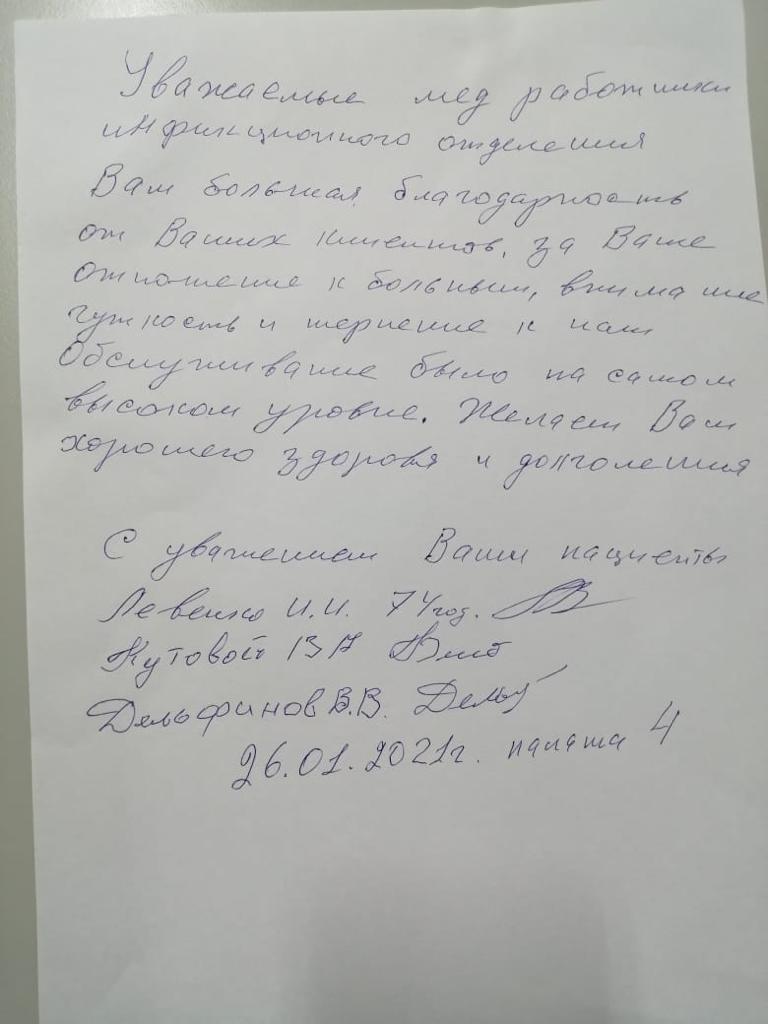 Уважаемые мед работники
инфикционного отделения
Вам большая благодарность
от Ваших клиентов, за Ваше
отношение к больным, внимание
чуткость и терпение к нам
Обслуживание было на самом
высоком уровне. Желаем Вам
хорошего здоровя и долголетия
С уважением Ваши пациенты
Левенко И.И. 74 год.
Кутовой В А
Дельфинов В.В.
26.01.2021г. палата 4